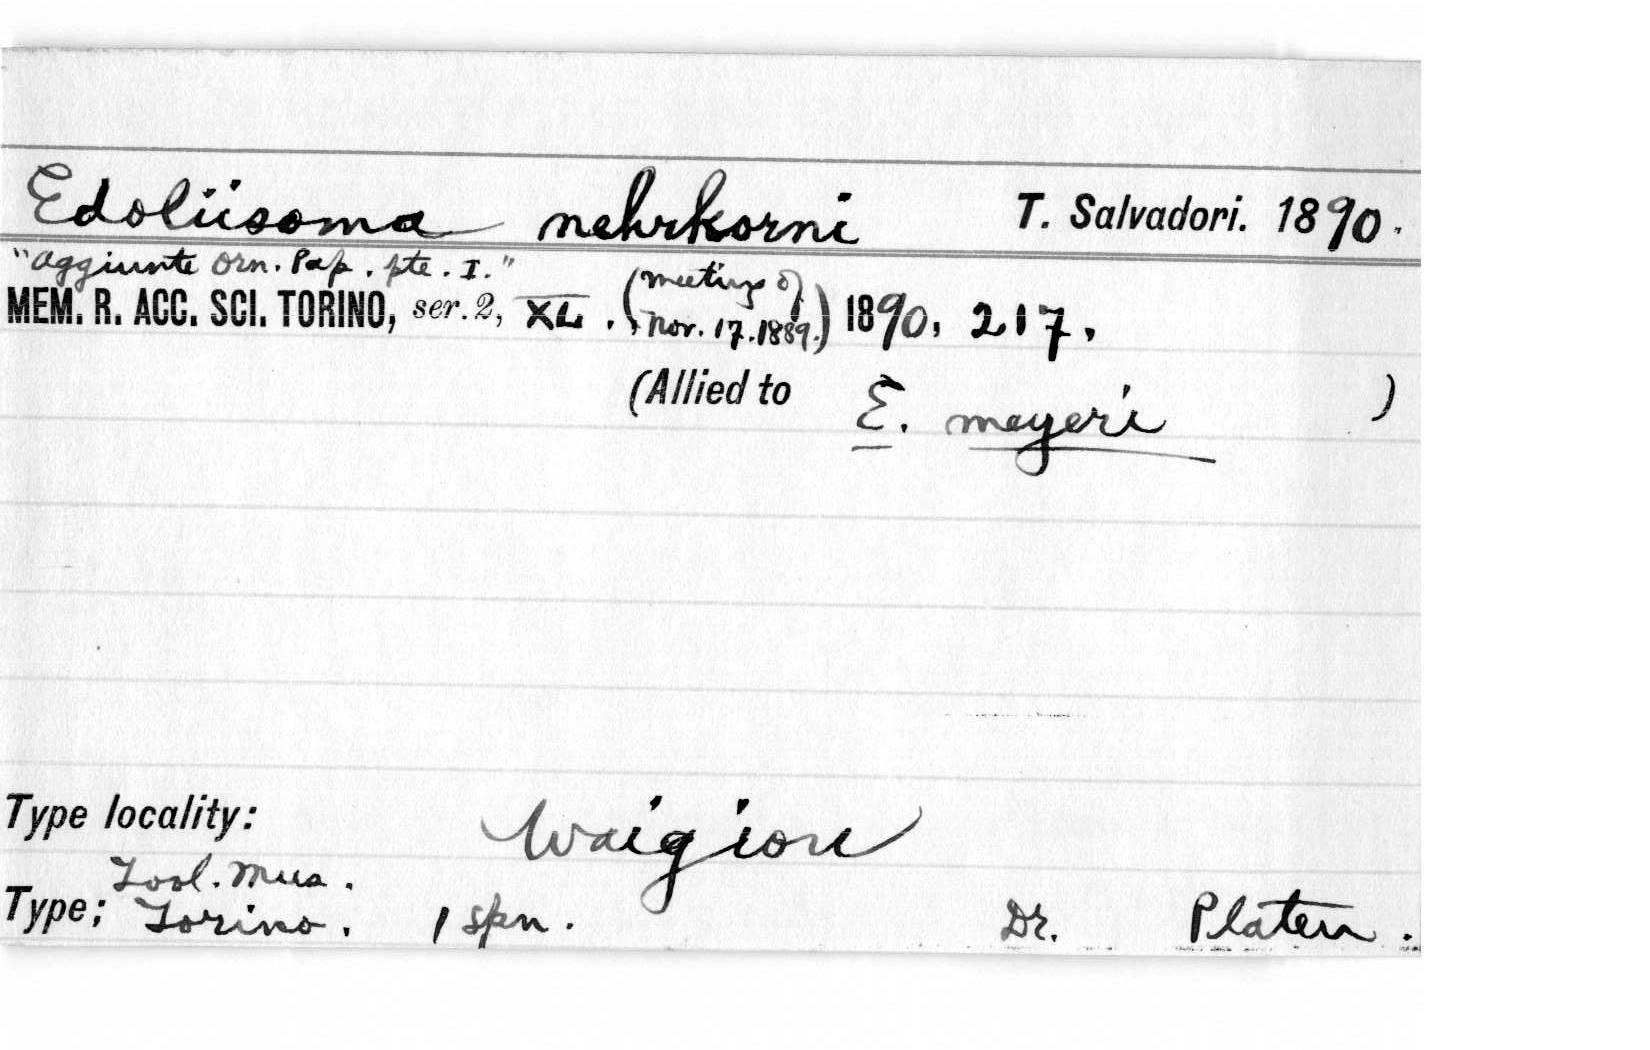 Edoliisoma nehrkorni T. Salvadori. 1890.
"Aggiunte Orn. Pap. pte. I."
MEM. R. ACC. SCI. TORINO, ser. 2, XL. (meeting of Nov. 17. 1889.) 1890, 217.
(Allied to E. meyeri)
Type locality: Waigiou
Zool. Mus.
Type; Torino. 1 spn. Dr. Platen.